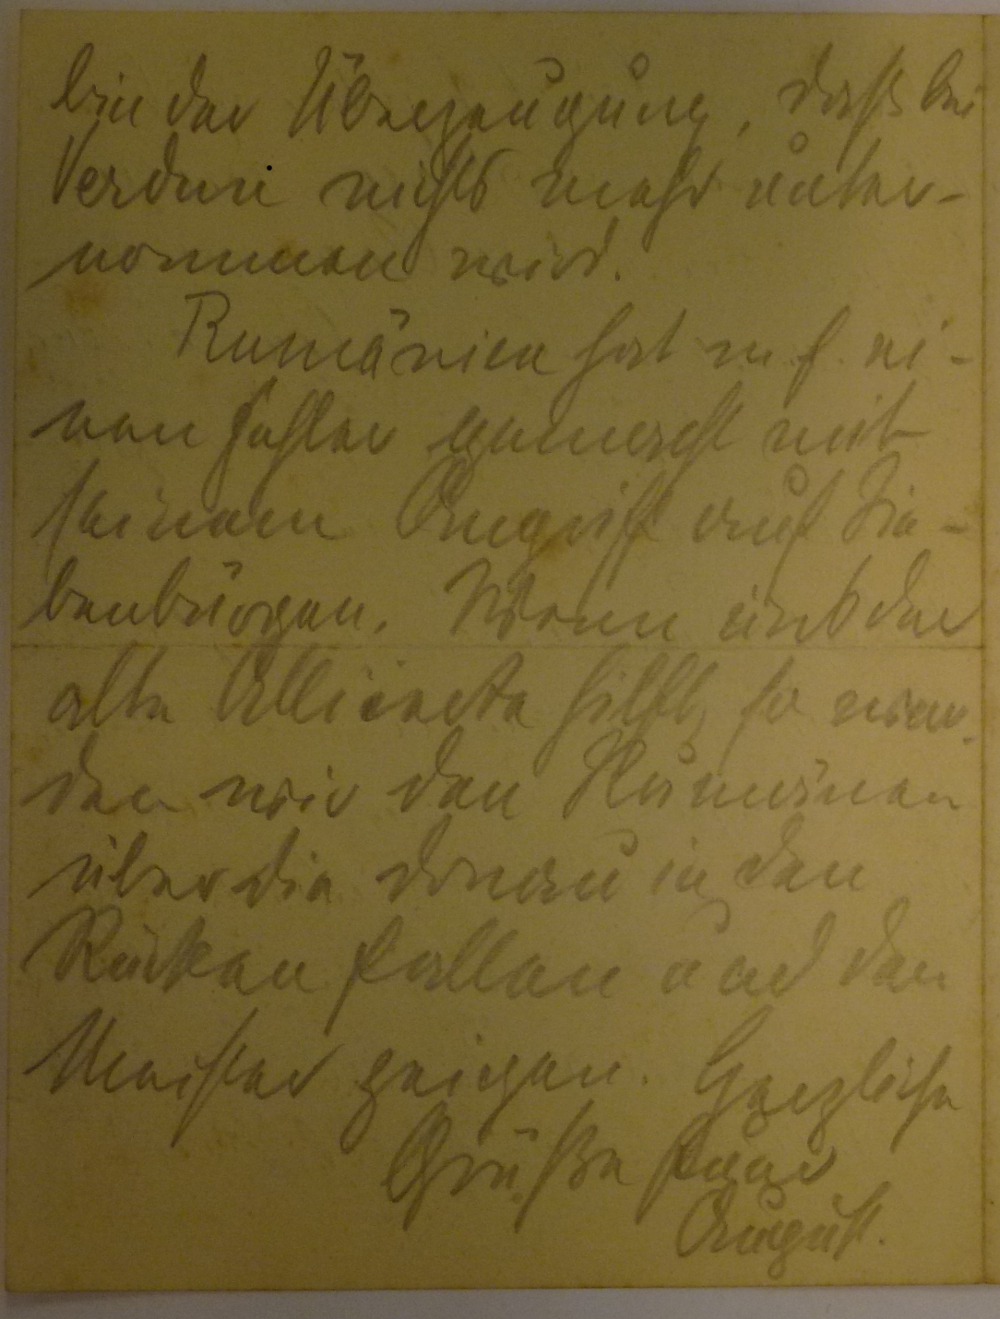 bin der Überzeugung, daß bei
Verdun nichts mehr unter-
nommen wird.
Rumänien hat m. E. ei-
nen Fehler gemacht mit
seinem Angriff auf Sie-
benbürgen. Wenn uns der
alte Alliierte hilft, so wer-
den wir den Rumänen
über die Donau in den
Rücken fallen und den
Meister zeigen. Herzliche
Grüße Euer
August.